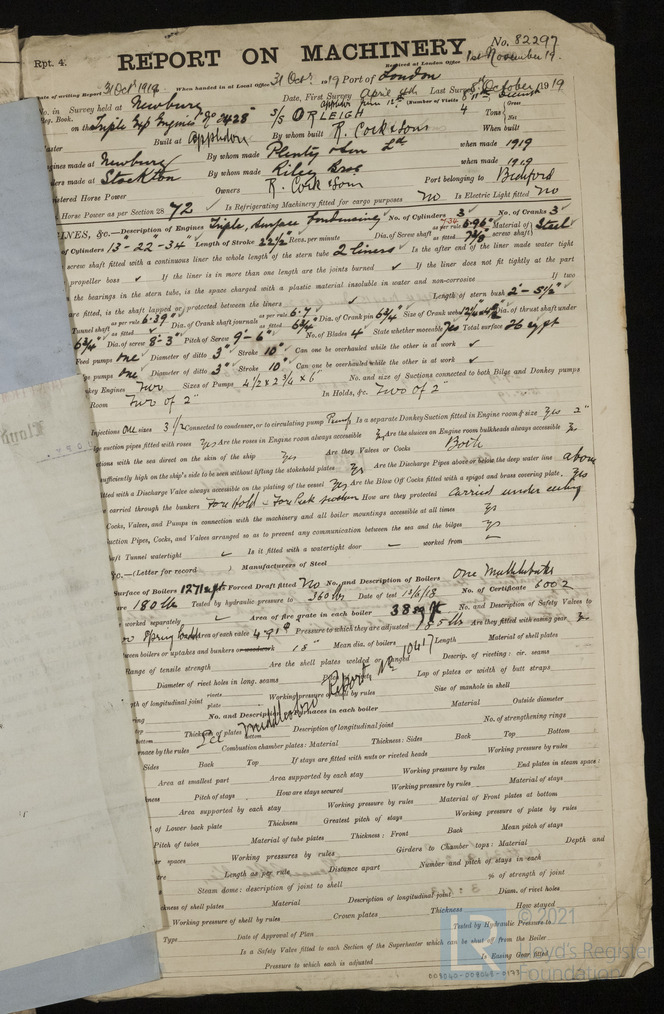 Rpt. 4.
REPORT ON MACHINERY
No. 82297
Received at London Office 1st November 19.
Date of writing Report 31 Octr 1919 When handed in at Local Office 31 Octr. 1919 Port of London
No. in Survey held at Newbury Date, First Survey April 8th Last Survey 8th October 1919
Reg. Book. (Number of Visits
on the Triple Exp Engines No 2428 S/S ORLEIGH Tons Gross Net
Master Built at Appledore By whom built R. Cock & Sons When built
Engines made at Newbury By whom made Plenty & Son Ltd when made 1919
Boilers made at Stockton By whom made Riley Bros when made 1919
Registered Horse Power Owners R. Cock & Son Port belonging to Bideford
Horse Power as per Section 28 72 Is Refrigerating Machinery fitted for cargo purposes No Is Electric Light fitted No
ENGINES, &c.—Description of Engines Triple, Surface Condensing No. of Cylinders 3 No. of Cranks 3
of Cylinders 13"-22"-34" Length of Stroke 22½" Revs. per minute Dia. of Screw shaft as per rule 6.96" as fitted 7⅜" Material of screw shaft Steel
screw shaft fitted with a continuous liner the whole length of the stern tube 2 Liners Is the after end of the liner made water tight
propeller boss ✓ If the liner is in more than one length are the joints burned ✓ If the liner does not fit tightly at the part
the bearings in the stern tube, is the space charged with a plastic material insoluble in water and non-corrosive If two
are fitted, is the shaft lapped or protected between the liners ✓ Length of stern bush 2'-5½"
Tunnel shaft as per rule 6.39" as fitted ✓ Dia. of Crank shaft journals as per rule 6.7 as fitted 6¾" Dia. of Crank pin 6¾" Size of Crank webs Dia. of thrust shaft under
6¾" Dia. of screw 8'-3" Pitch of Screw 9'-6" No. of Blades 4 State whether moveable Yes Total surface 26 sq ft
Feed pumps One Diameter of ditto 3" Stroke 10" Can one be overhauled while the other is at work ✓
pumps One Diameter of ditto 3" Stroke 10" Can one be overhauled while the other is at work ✓
Donkey Engines Two Sizes of Pumps 4½ x 2¾ x 6" No. and size of Suctions connected to both Bilge and Donkey pumps
Room Two of 2" In Holds, &c. Two of 2"
Injections One sizes 3½ Connected to condenser, or to circulating pump Pump Is a separate Donkey Suction fitted in Engine room & size Yes 2"
suction pipes fitted with roses Yes Are the roses in Engine room always accessible Yes Are the sluices on Engine room bulkheads always accessible Yes
with the sea direct on the skin of the ship Yes Are they Valves or Cocks Both
sufficiently high on the ship's side to be seen without lifting the stokehold plates Yes Are the Discharge Pipes above or below the deep water line above
fitted with a Discharge Valve always accessible on the plating of the vessel Yes Are the Blow Off Cocks fitted with a spigot and brass covering plate Yes
carried through the bunkers Fore Hold & Fore Peak suction How are they protected Carried under ceiling
Cocks, Valves, and Pumps in connection with the machinery and all boiler mountings accessible at all times Yes
Suction Pipes, Cocks, and Valves arranged so as to prevent any communication between the sea and the bilges Yes
Shaft Tunnel watertight – Is it fitted with a watertight door – worked from –
(Letter for record ) Manufacturers of Steel
Surface of Boilers 1271 sq ft Forced Draft fitted No No. and Description of Boilers One Multitubular
180 lbs Tested by hydraulic pressure to 360 lbs Date of test No. of Certificate 6002
worked separately Area of fire grate in each boiler 38 sq ft No. and Description of Safety Valves to
Spring loaded Area of each valve Pressure to which they are adjusted 185 lbs Are they fitted with easing gear Yes
between boilers or uptakes and bunkers or woodwork 18" Mean dia. of boilers Length Material of shell plates
Range of tensile strength Are the shell plates welded or flanged Descrip. of riveting: cir. seams
Diameter of rivet holes in long. seams Lap of plates or width of butt straps
of longitudinal joint rivets plate Working pressure of shell by rules Size of manhole in shell
No. and Description of Furnaces in each boiler Material Outside diameter
Per Middlesbro Report No 10417
Thickness of plates Description of longitudinal joint No. of strengthening rings
furnace by the rules Combustion chamber plates: Material Thickness: Sides Back Top Bottom
Sides Back Top If stays are fitted with nuts or riveted heads Working pressure by rules
Area at smallest part Area supported by each stay Working pressure by rules End plates in steam space:
Pitch of stays How are stays secured Working pressure by rules Material of stays
Area supported by each stay Working pressure by rules Material of Front plates at bottom
of Lower back plate Thickness Greatest pitch of stays Working pressure of plate by rules
Pitch of tubes Material of tube plates Thickness: Front Back Mean pitch of stays
spaces Working pressures by rules Girders to Chamber tops: Material Depth and
Length as per rule Distance apart Number and pitch of stays in each
Steam dome: description of joint to shell % of strength of joint
Thickness of shell plates Material Description of longitudinal joint Diam. of rivet holes
Working pressure of shell by rules Crown plates Thickness How stayed
Type Date of Approval of Plan Tested by Hydraulic Pressure to
Is a Safety Valve fitted to each Section of the Superheater which can be shut off from the Boiler
Pressure to which each is adjusted Is Easing Gear fitted
LR
© 2021
Lloyd's Register
Foundation